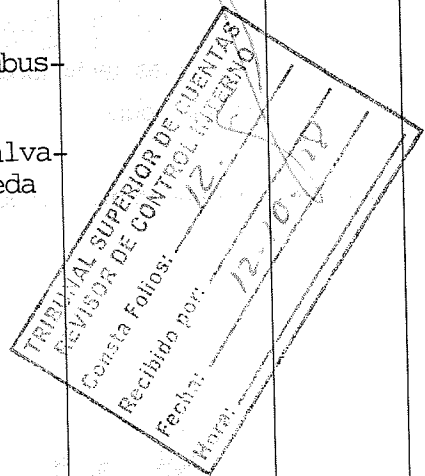 bus-
alva-
eda
TRIBUNAL SUPERIOR DE CUENTAS
REVISOR DE CONTROL INTERNO
Consta Folios: 12.
Recibido por:
Fecha: 12-10-/18
Hora: